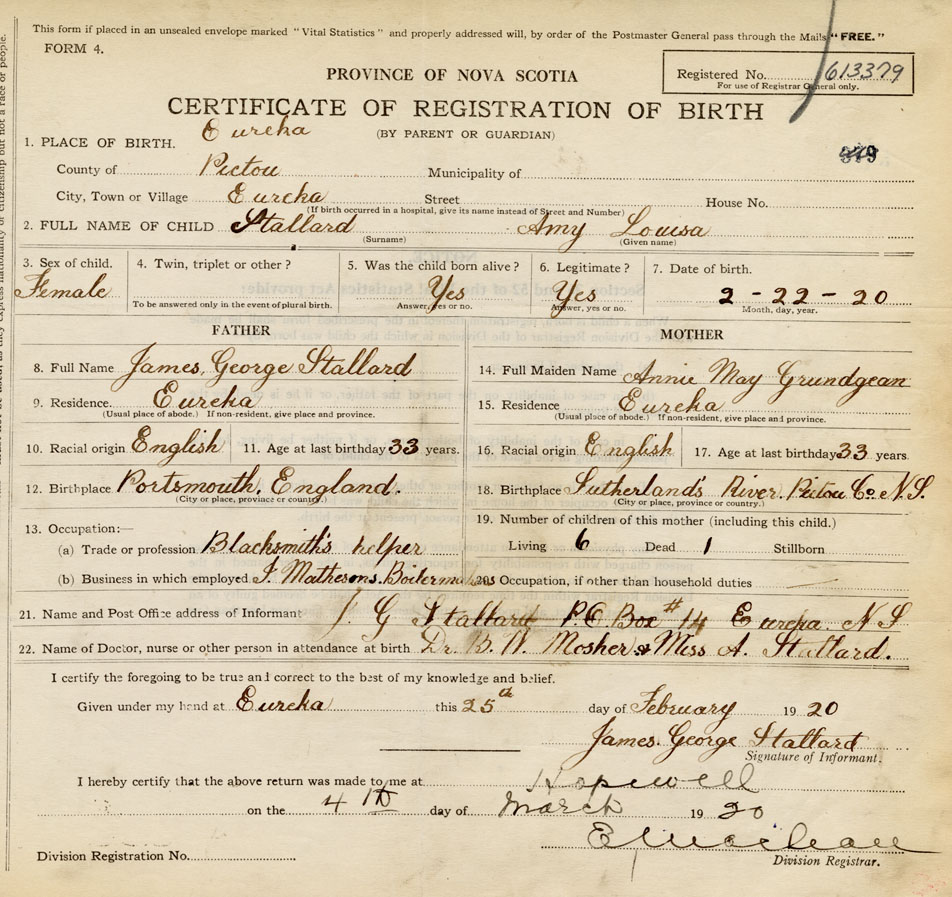 This form if placed in an unsealed envelope marked "Vital Statistics" and properly addressed will, by order of the Postmaster General pass through the Mails "FREE."
FORM 4.
PROVINCE OF NOVA SCOTIA
Registered No. 613379
For use of Registrar General only.
CERTIFICATE OF REGISTRATION OF BIRTH
(BY PARENT OR GUARDIAN)
1. PLACE OF BIRTH. Eureka
County of Pictou Municipality of
City, Town or Village Eureka Street House No.
(If birth occurred in a hospital, give its name instead of Street and Number)
2. FULL NAME OF CHILD Stallard Amy Louisa
(Surname) (Given name)
3. Sex of child. 4. Twin, triplet or other? 5. Was the child born alive? 6. Legitimate? 7. Date of birth.
Female Yes Yes 2-22-20
To be answered only in the event of plural birth. Answer, yes or no. Answer, yes or no. Month, day, year.
FATHER MOTHER
8. Full Name James George Stallard
9. Residence. Eureka
(Usual place of abode.) If non-resident, give place and province.
10. Racial origin English 11. Age at last birthday 33 years.
12. Birthplace Portsmouth, England.
(City or place, province or country)
13. Occupation:—
(a) Trade or profession Blacksmith's helper
(b) Business in which employed I. Mathesons. Boilermakers
14. Full Maiden Name Annie May Grundgean
15. Residence Eureka
(Usual place of abode.) If non-resident, give place and province.
16. Racial origin English 17. Age at last birthday 33 years.
18. Birthplace Sutherland's River. Pictou Co. N.S.
(City or place, province or country.)
19. Number of children of this mother (including this child.)
Living 6 Dead 1 Stillborn
20. Occupation, if other than household duties
21. Name and Post Office address of Informant J. G Stallard P.O Box # 14 Eureka. N S
22. Name of Doctor, nurse or other person in attendance at birth Dr. B. W. Mosher & Miss A. Stallard.
I certify the foregoing to be true and correct to the best of my knowledge and belief.
Given under my hand at Eureka this 25th day of February 1920
James. George Stallard
Signature of Informant.
I hereby certify that the above return was made to me at Hopewell
on the 4th day of March 1920
Division Registrar.
Division Registration No.